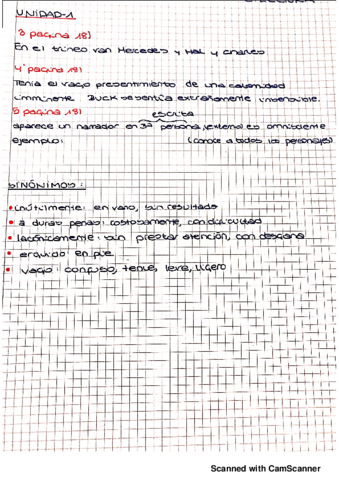 UNIDAD-1
3 pagina 18)
En el trineo van Mercedes y Hal y Charles
4 pagina 18)
Tenia el vago presentimiento de una calamidad
imminente. Buck se sentia extrañamente insensible.
5 pagina 18)
escrita
aparece un narrador en 3ª persona, externo es omnisciente
ejemplo: (conoce a todos los personajes)
SINÓNIMOS:
• inútilmente: en vano, sin resultado
• a duras penas: costosamente, con dificultad
• lacónicamente: sin prestar atención, con desgana
• erguido: en pie
• vago: confuso, tenue, leve, ligero
Scanned with CamScanner